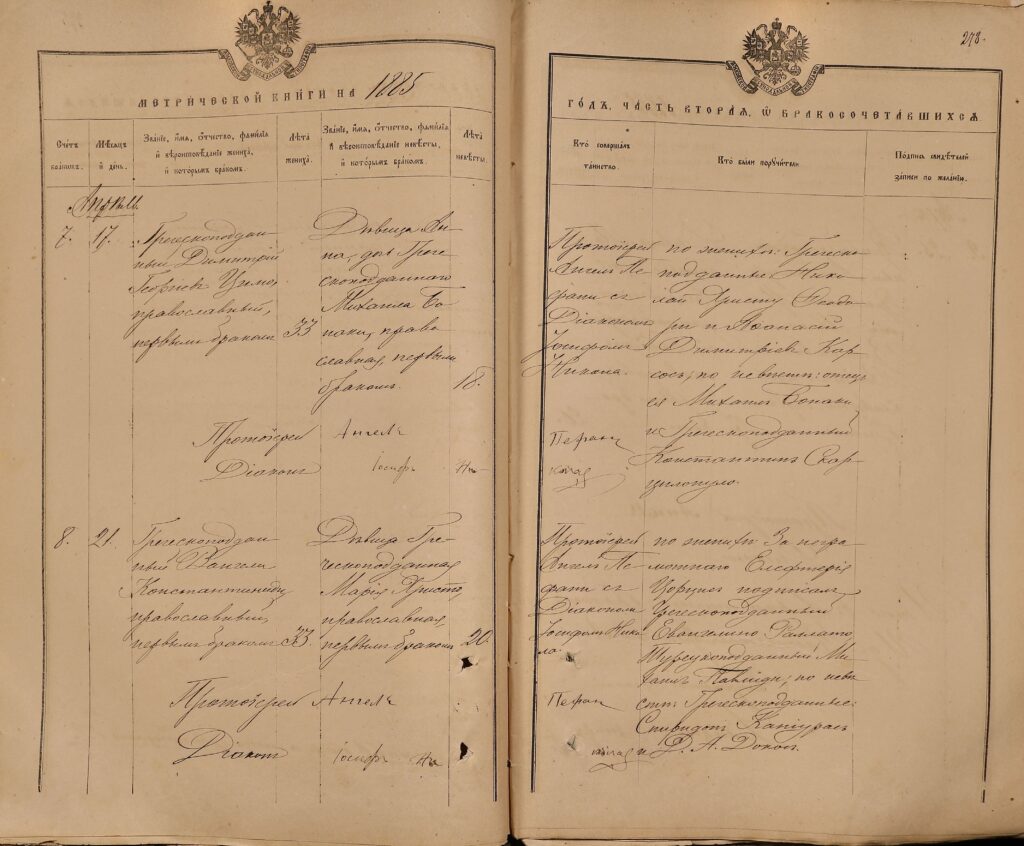 МЕТРИЧЕСКОЙ КНИГИ НА 1885
Счетъ браковъ.
Мѣсяцъ и день.
Званіе, имя, отчество, фамилія и вѣроисповѣданіе жениха, и которымъ бракомъ.
Лѣта жениха.
Званіе, имя, отчество, фамилія и вѣроисповѣданіе невѣсты, и которымъ бракомъ.
Лѣта невѣсты.
7.
17.
Грекоподдан
ный Димитрій
Георгіевъ
православный,
первымъ бракомъ
33
Дѣвица Ан
на, дочь Гре
скоподданнаго
Михаила Бо
паки, право
славная, первымъ
бракомъ.
18.
Протоіерей Ангелъ
Діаконъ Іосифъ
8.
21.
Грекоподдан
ный Вангели
Константиниди,
православный,
первымъ бракомъ
33.
Дѣвица Гре
ческоподданная
Марія Христо,
православная,
первымъ бракомъ
20.
Протоіерей Ангелъ
Діаконъ Іосифъ
278.
ГОДЪ, ЧАСТЬ ВТОРАЯ, Ѡ БРАКОСОЧЕТАВШИХСЯ
Кто совершалъ таинство.
Кто были поручители.
Подпись свидѣтелей записи по желанію.
Протоіерей
Ангелъ Пе
фани съ
Діакономъ
Іосифомъ
Никола.
по женихѣ: Греческо
подданные Нико
лай Христу Ѳеодо
ри и Аѳанасій
Димитріевъ Кар
сосъ; по невѣстѣ: отецъ
ея Михаилъ Бопаки
и Грекоподданный
Константинъ Скар
цилопуло.
Протоіерей
Ангелъ Пе
фани съ
Діакономъ
Іосифомъ Нико
ла.
по женихѣ: За негра
мотнаго Елефтерія
подписалъ
Грекоподданный
Евангелино
Турецкоподданный Ми
хаилъ Павлиди; по невѣ
стѣ: Грекоподданные:
Спиридонъ
и Д. А.